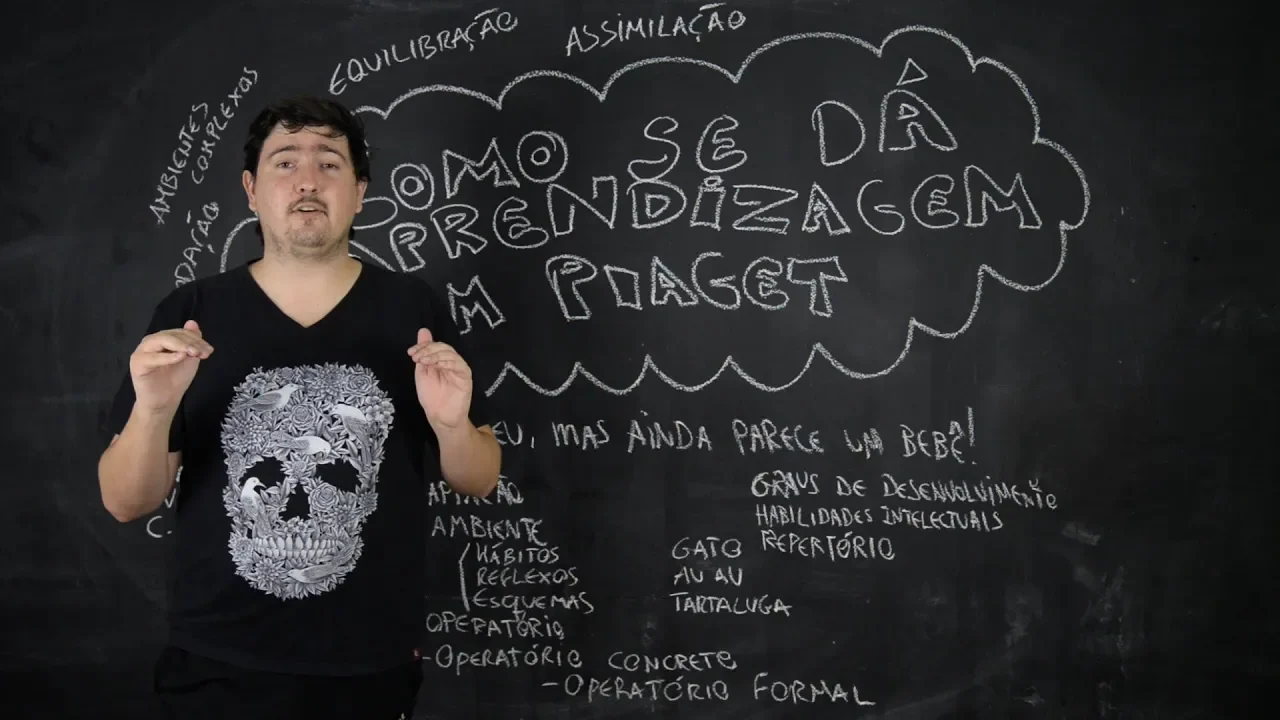 EQUILIBRAÇÃO
ASSIMILAÇÃO
AMBIENTES
COMPLEXOS
DAÇÃO
COMO SE DÁ
PRENDIZAGEM
M PIAGET
EU, MAS AINDA PARECE UM BEBÊ!
APTAÇÃO
AMBIENTE
HÁBITOS
REFLEXOS
ESQUEMAS
OPERATÓRIO
-OPERATÓRIO CONCRETO
-OPERATÓRIO FORMAL
GATO
AU AU
TARTALUGA
GRAUS DE DESENVOLVIMENTO
HABILIDADES INTELECTUAIS
REPERTÓRIO